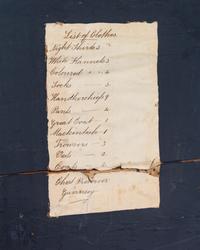 List of Clothes
Night Shirts 3
White Flannels 3
Coloured " " 4
Socks 5
Handkerchiefs 9
Pants 2
Great Coat 1
Mackintosh 1
Trowsers 3
Vests 2
Coats
Chest Preserver
Guernsey